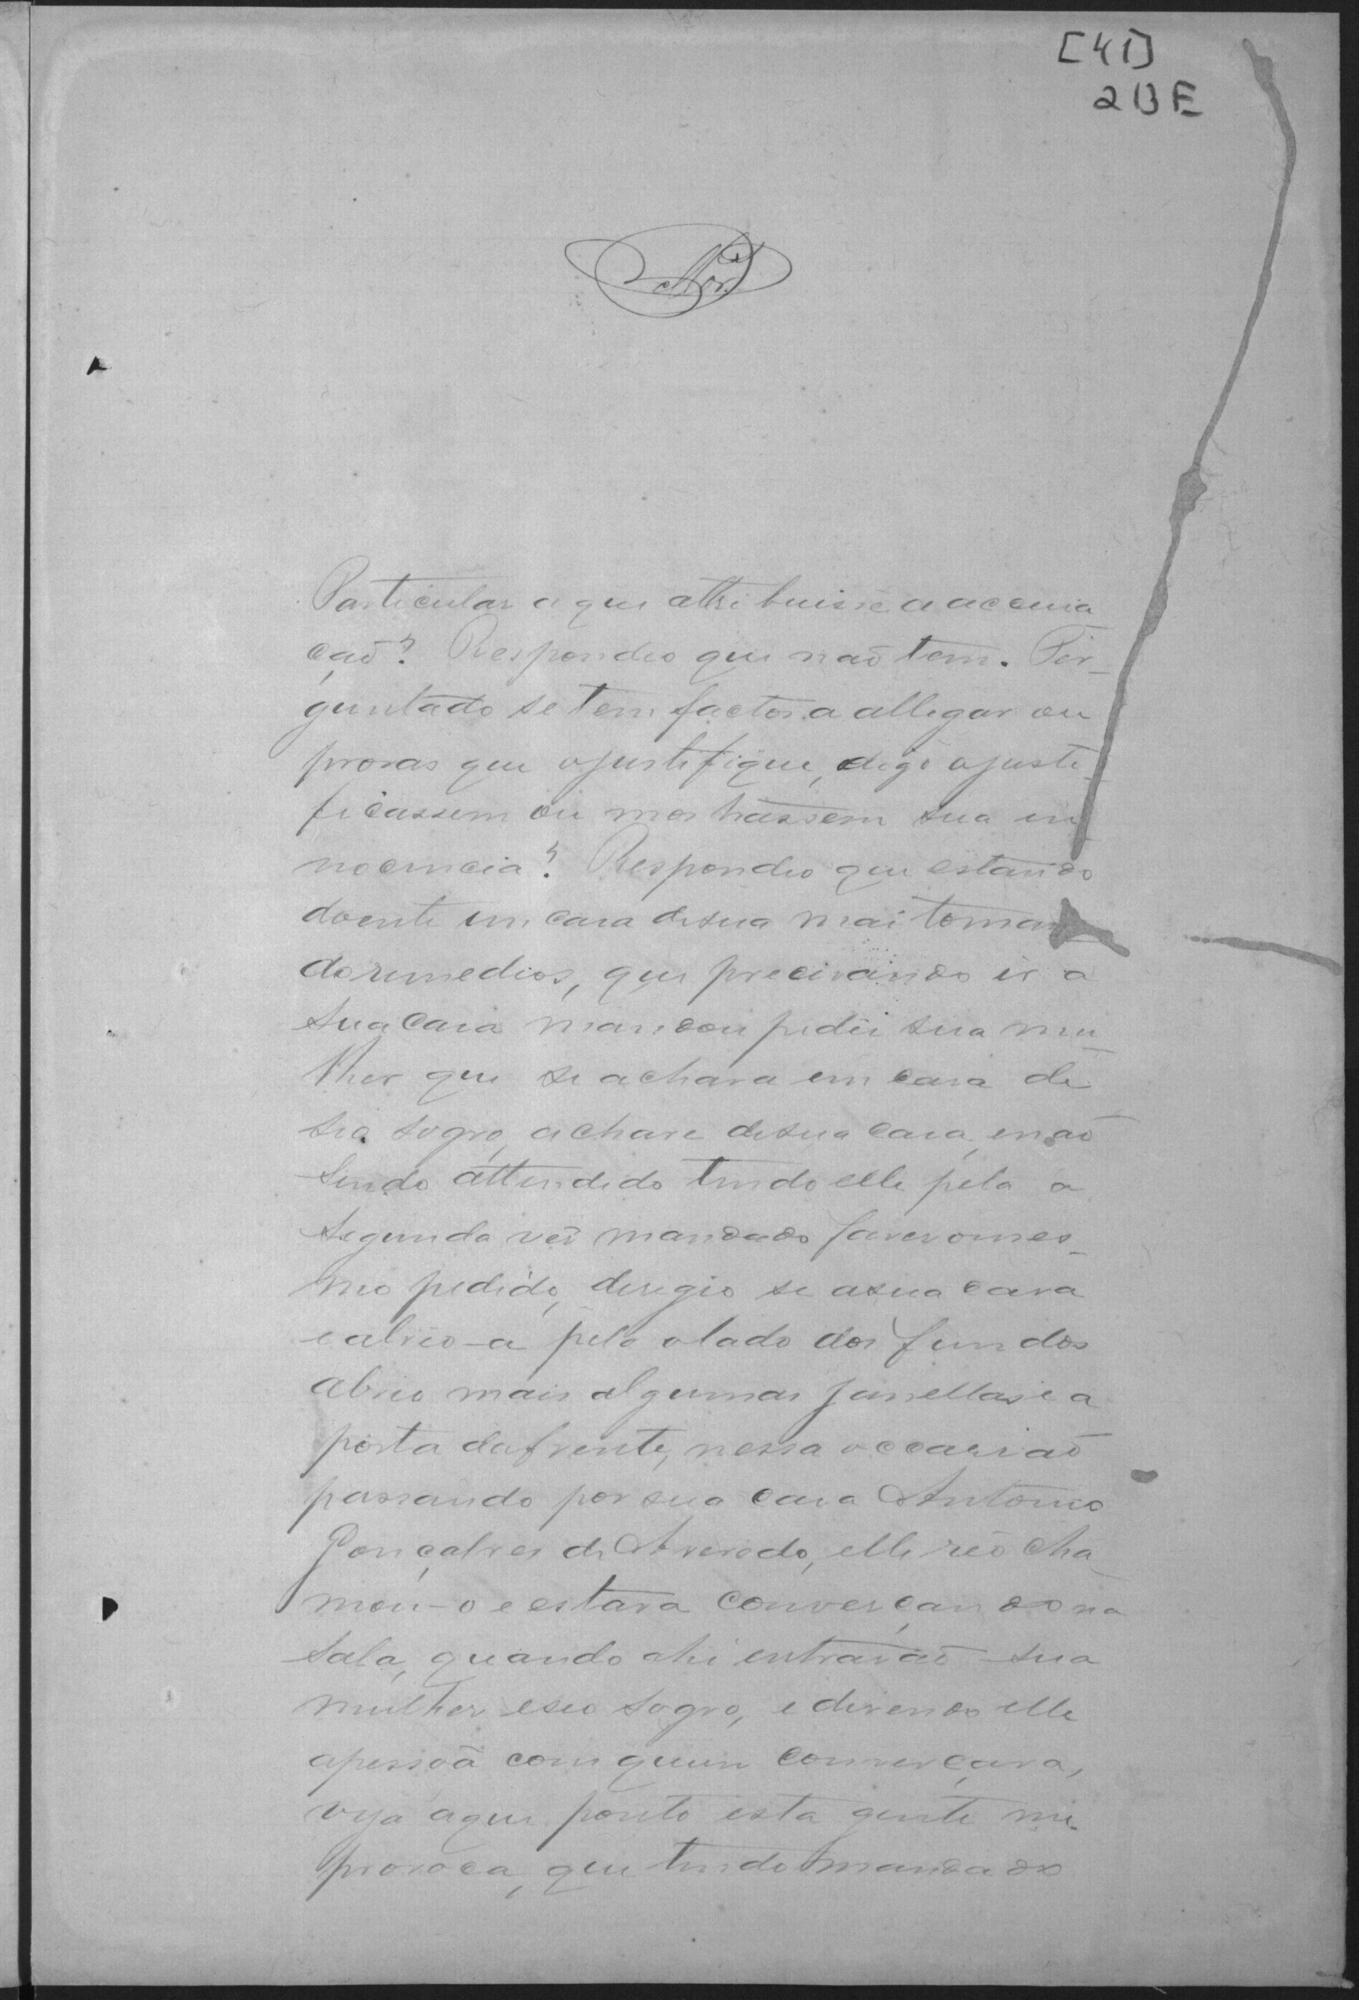 [41]
213E
Particular a que attribuisse a accusa
ção? Respondeo que não tem. Per-
guntado se tem factos a allegar ou
provas que o justifique, digo o justi-
ficassem ou mostrassem sua in-
nocencia? Respondeo que estando
doente em casa de sua mai toman
do remedios, que precisando ir a
sua casa mandou pedir sua mu-
lher que se achava em casa de
seo sogro, a chave de sua casa, e não
sendo attendido tendo elle pela a
segunda vez mandado faser o mes-
mo pedido, dirigio se a sua casa
e abrio-a pelo o lado dos fundos
abrio mais algumas janellas e a
porta da frente, nessa occasião
passando por sua casa Antonio
Gonçalves de Asevedo, elle réo cha-
mou-o e estava converçando na
sala, quando ahi entrarão sua
mulher e seo sogro, e disendo elle
a pessoa com quem converçava,
veja a que ponto esta gente me
provoca, que tendo mandado